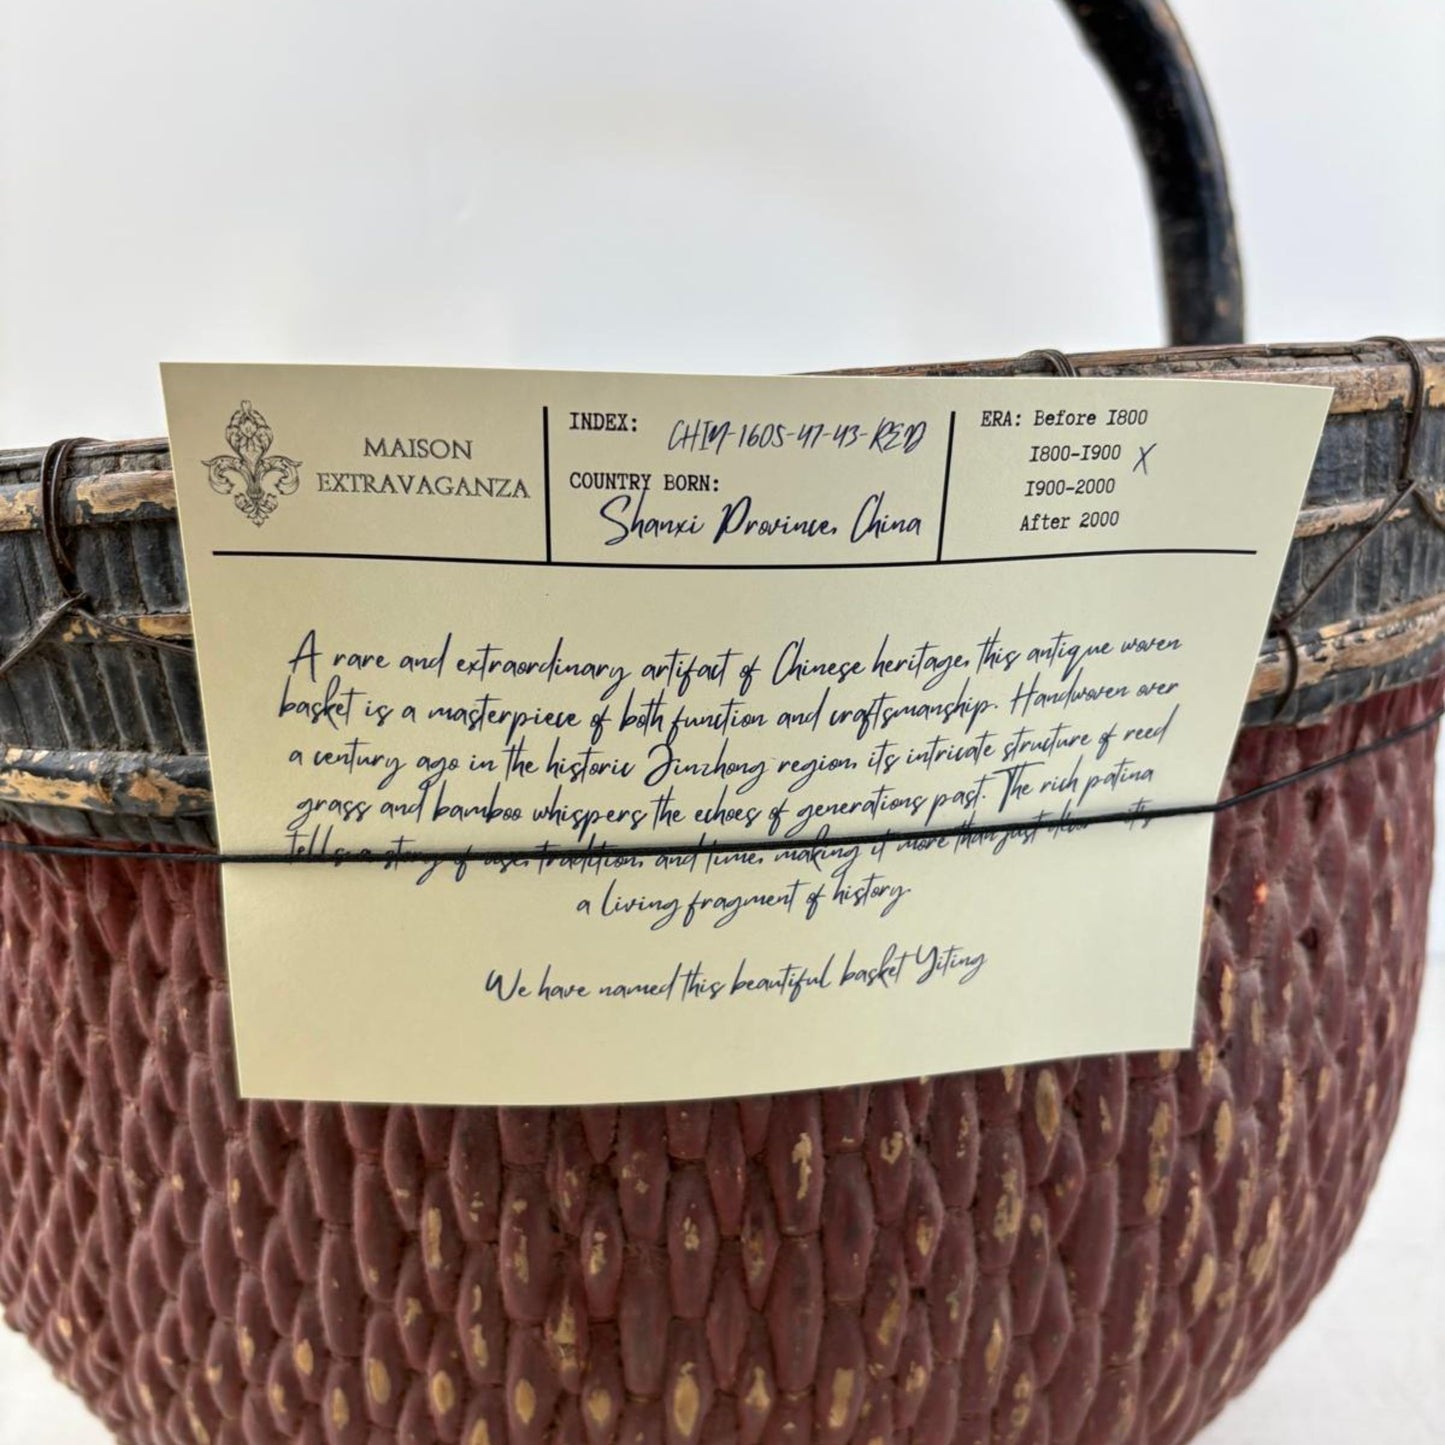 MAISON
EXTRAVAGANZA
INDEX: CHIM-1605-47-43-RED
COUNTRY BORN:
Shanxi Province, China
ERA: Before 1800
1800-1900 X
1900-2000
After 2000
A rare and extraordinary artifact of Chinese heritage, this antique woven
basket is a masterpiece of both function and craftsmanship. Handwoven over
a century ago in the historic Jinzhong region, its intricate structure of reed
grass and bamboo whispers the echoes of generations past. The rich patina
tells a story of use, tradition, and time, making it more than just decor – it's
a living fragment of history.
We have named this beautiful basket Yiting